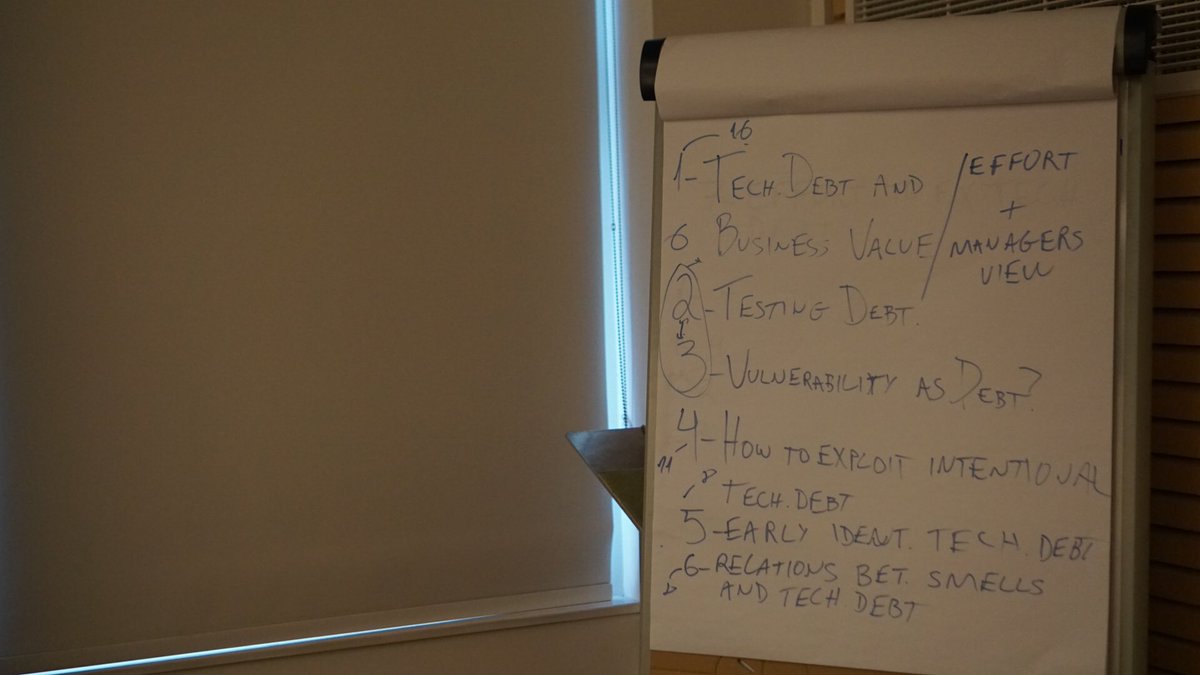 16
1- TECH. DEBT AND / EFFORT
+
6 BUSINESS VALUE / MANAGERS
VIEW
2 - TESTING DEBT.
3 - VULNERABILITY AS DEBT?
4 - HOW TO EXPLOIT INTENTIONAL
11
TECH. DEBT
5 - EARLY IDENT. TECH. DEBT
6 - RELATIONS BET. SMELLS
AND TECH. DEBT